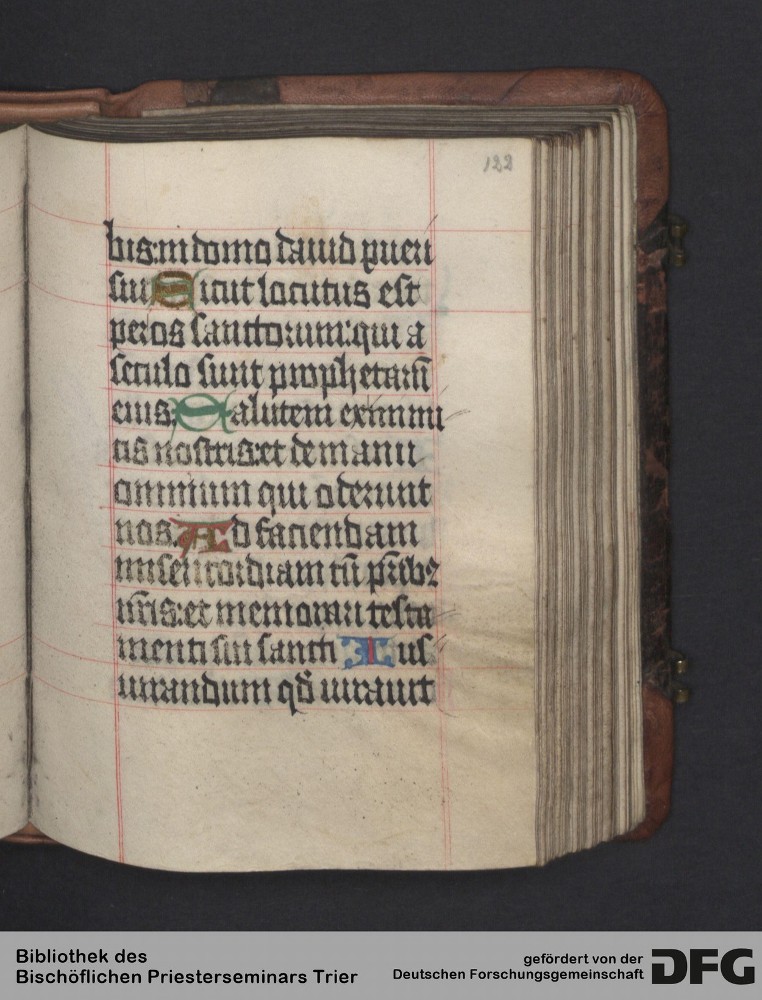 122
bis:in domo dauid pueri
sui Sicut locutus est
per os sanctorum:qui a
seculo sunt prophetarū
eius. Salutem ex inimi
cis nostris:et de manu
omnium qui oderunt
nos. Ad faciendam
misericordiam cū pr̄ibꝫ
nr̄is:et memorari testa
menti sui sancti Ius
iurandum qd̄ iurauit
Bibliothek des
Bischöflichen Priesterseminars Trier
gefördert von der
Deutschen Forschungsgemeinschaft
DFG